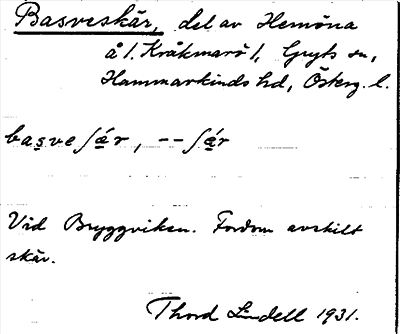 Basveskär, del av Hemöna
å /. Kråkmarö /, Gryts sn,
Hammarkinds hd, Österg. l.
basve ʃär, -- ʃär
Vid Bryggviken. Fordom avskilt
skär.
Thord Lindell 1931.